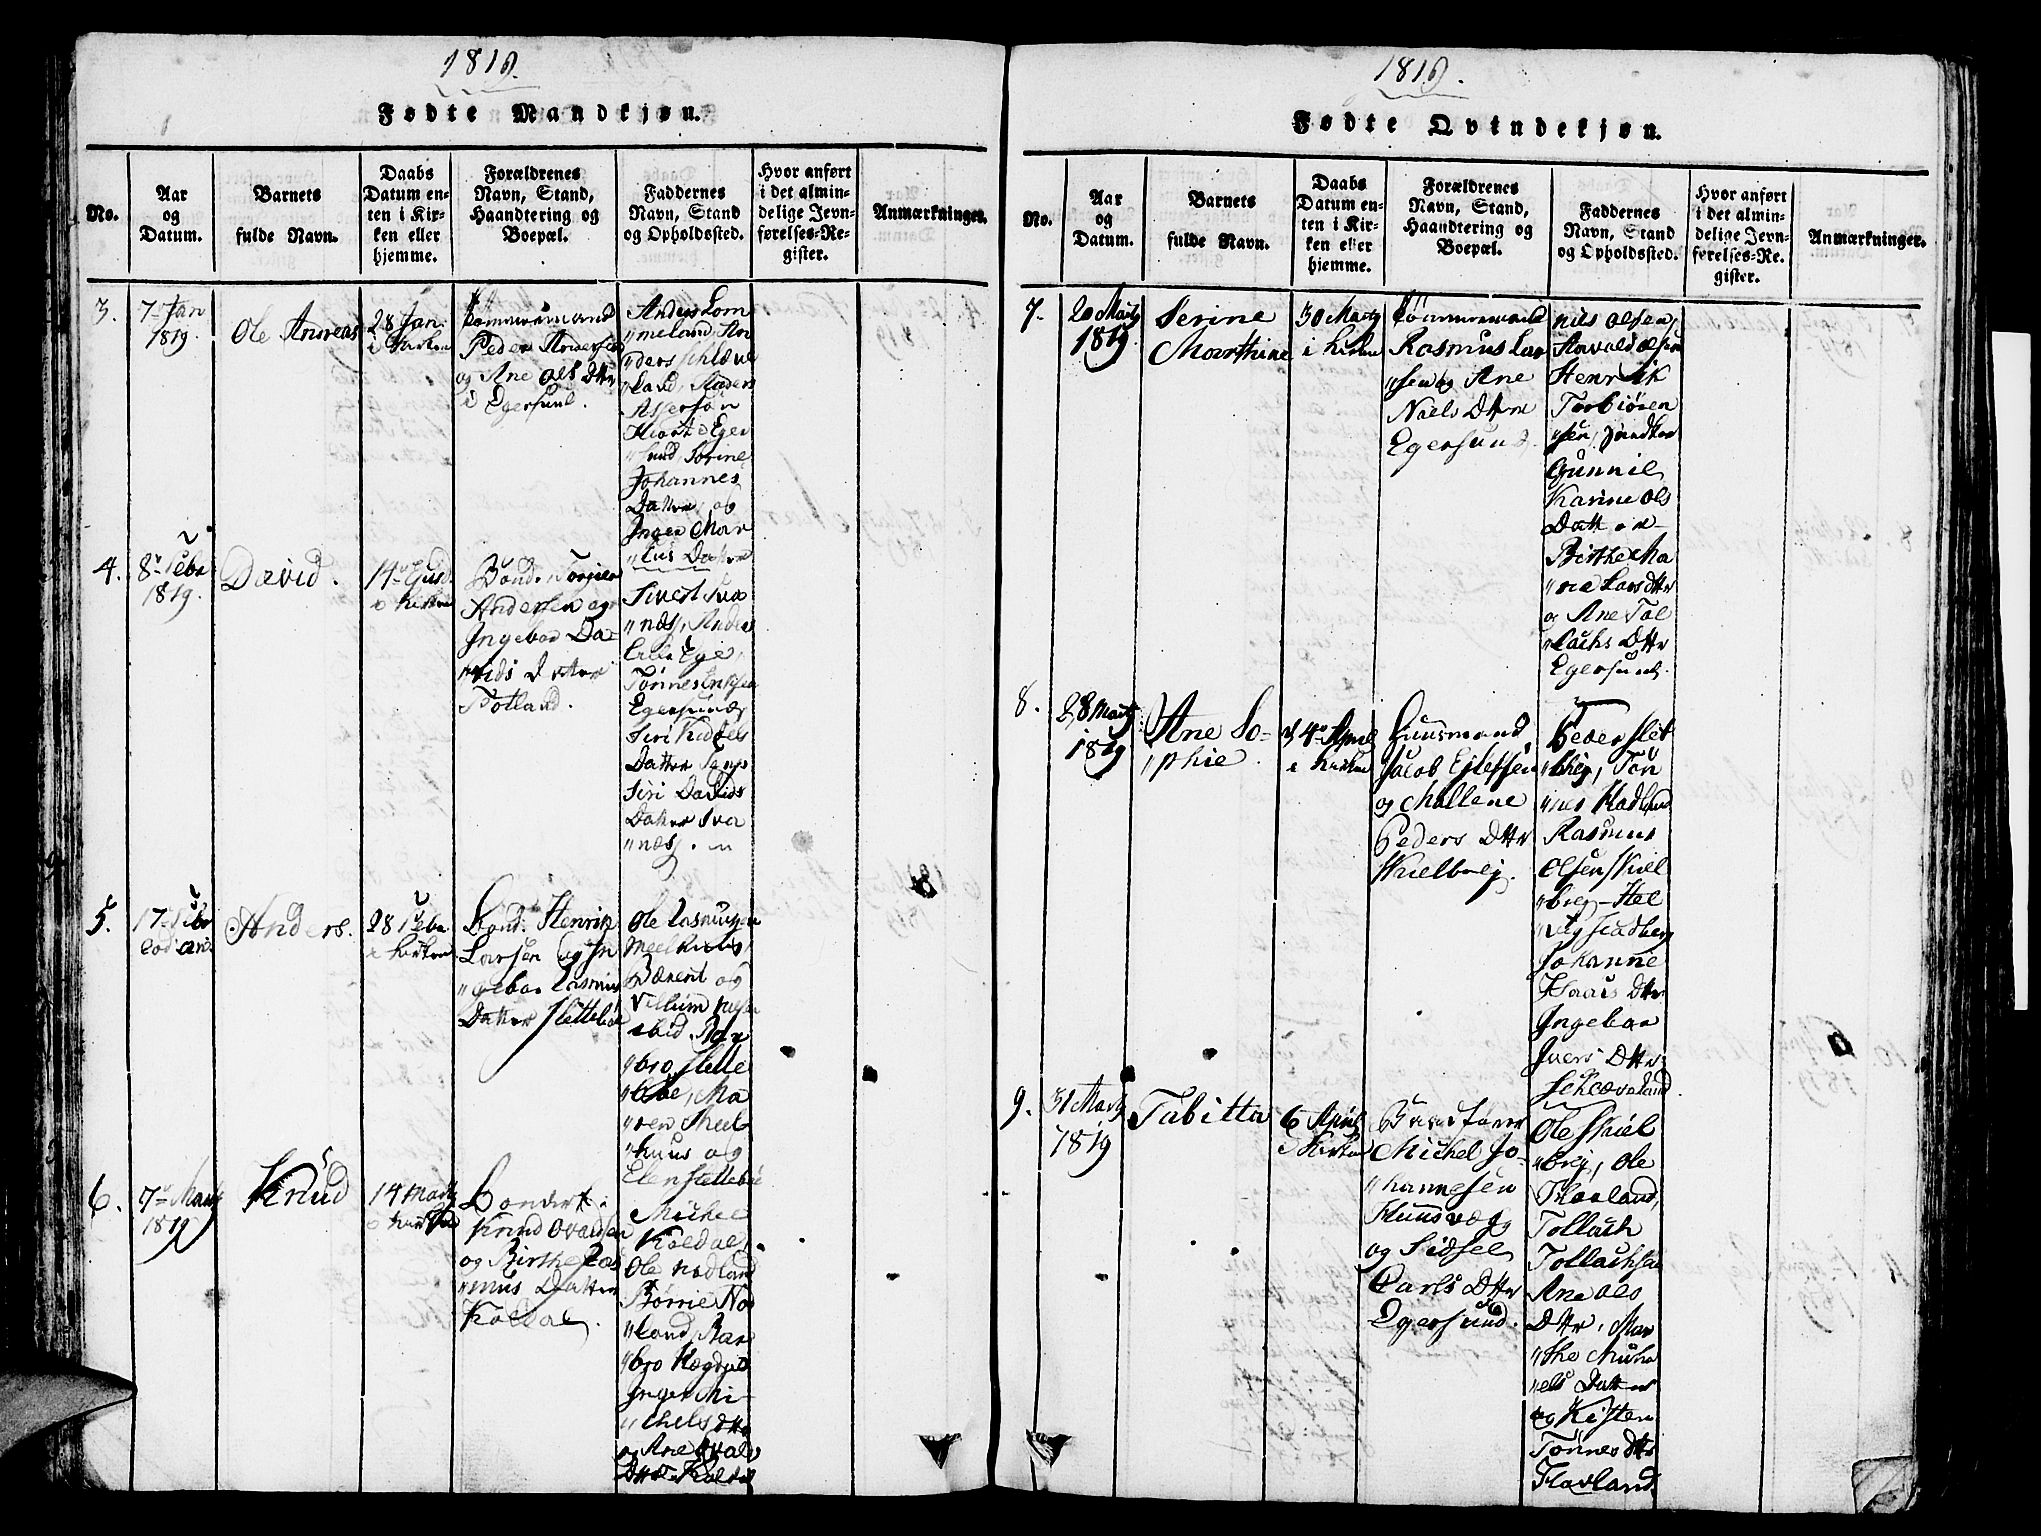 1819.
Fødte Mandkjøn.
No.
Aar
og
Datum.
Barnets
fulde Navn.
Daabs
Datum en-
ten i Kir-
ken eller
hjemme.
Forældrenes
Navn, Stand,
Haandtering og
Boepæl.
Faddernes
Navn, Stand
og Opholdssted.
Hvor anført
i det almin-
delige Jevn-
førelses-Re-
gister.
Anmærkninger.
3.
7 Jan
1819.
Ole Andreas
28 Jan.
i Kirken
Peder Andersen
og Ane Ols Dttr
i Egersund.
Anders Lom
"meland, An
"ders
"land, Anders
Assersøn
Hiort Eger
"sund, Sorine
Johannes
Datter og
Inger Mar
"tus Datter
4.
8 Febr
1819.
David.
14
i Kirken
Bond. Torgier
Andersen og
Ingebor Da-
"vids Datter
Potland.
Sivert Sva
"næs, Anders
Ege,
Tønnes
Egersund
Siri
Datter
Siri Davids
Datter Sva
"næs.
5.
17 Febr
eod an.
Anders.
28 Febr
i Kirken
Bond. Henrik
Larsen og In
"gebor Rasmus
Datter Slettebøe
Ole Rasmusen
Berent og
Villum
Bar
"bro Slette
"bøe, Ma
"ren
"huus og
Elen Slettebøe
6.
7 Marty
1819
Knud
14 Marty
i Kirken
Bonder
Knud Ovaldsen
og Birthe Ras
"mus Datter
Koldal.
Michel
Koldal,
Ole Nodland
Børrie No
"land, Bar
"bro Hegdal
Inger Mi-
"chels Dttr
og Ane Ovals
Dttr Koldal
1819.
Fødte Qvindekjøn.
No.
Aar
og
Datum.
Barnets
fulde Navn.
Daabs
Datum en-
ten i Kir-
ken eller
hjemme.
Forældrenes
Navn, Stand,
Haandtering og
Boepæl.
Faddernes
Navn, Stand
og Opholdssted.
Hvor anført
i det almin-
delige Jevn-
førelses-Re-
gister.
Anmærkninger.
7.
20 Marty
1819
Serine
Marthine
30 Marty
i Kirken
Tømmermand
Rasmus Lar
"sen og Ane
Niels Dttr
Egersund.
Nils Olsen,
Henrik
Torbiøren
"sen,
Gunnil
Karine Ols
Datter
Birthe Ma
"ria Lars Dttr
og Ane Tol
"lachs Dttr
Egersund.
8.
28 Marty
1819
Ane So-
"phie
4 April
i Kirken
Huusmand
Jacob Ejlefsen
og Mallene
Peders Dttr
Skielbrej.
Peder Slet
"brej, Tøn
"nes Hadland
Rasmus
Olsen Skiel
"brej Hel
"vig Stadberg
Johanne
Haais Dttr
Ingebor
Ivers Dttr
Schæveland
9.
31 Marty
1819
Tabitta
6 April
i Kirken
Michel Jo-
"hannesen
Huusvæg
og Sidsel
Carls Dttr
Egersund.
Ole Skiel
"brej, Ole
Havland,
Tollach
Tollachsen
Ane Ols
Dttr, Mar
"the Micha
"els Datter
og Kisten
Tønnes Dttr
Havland.